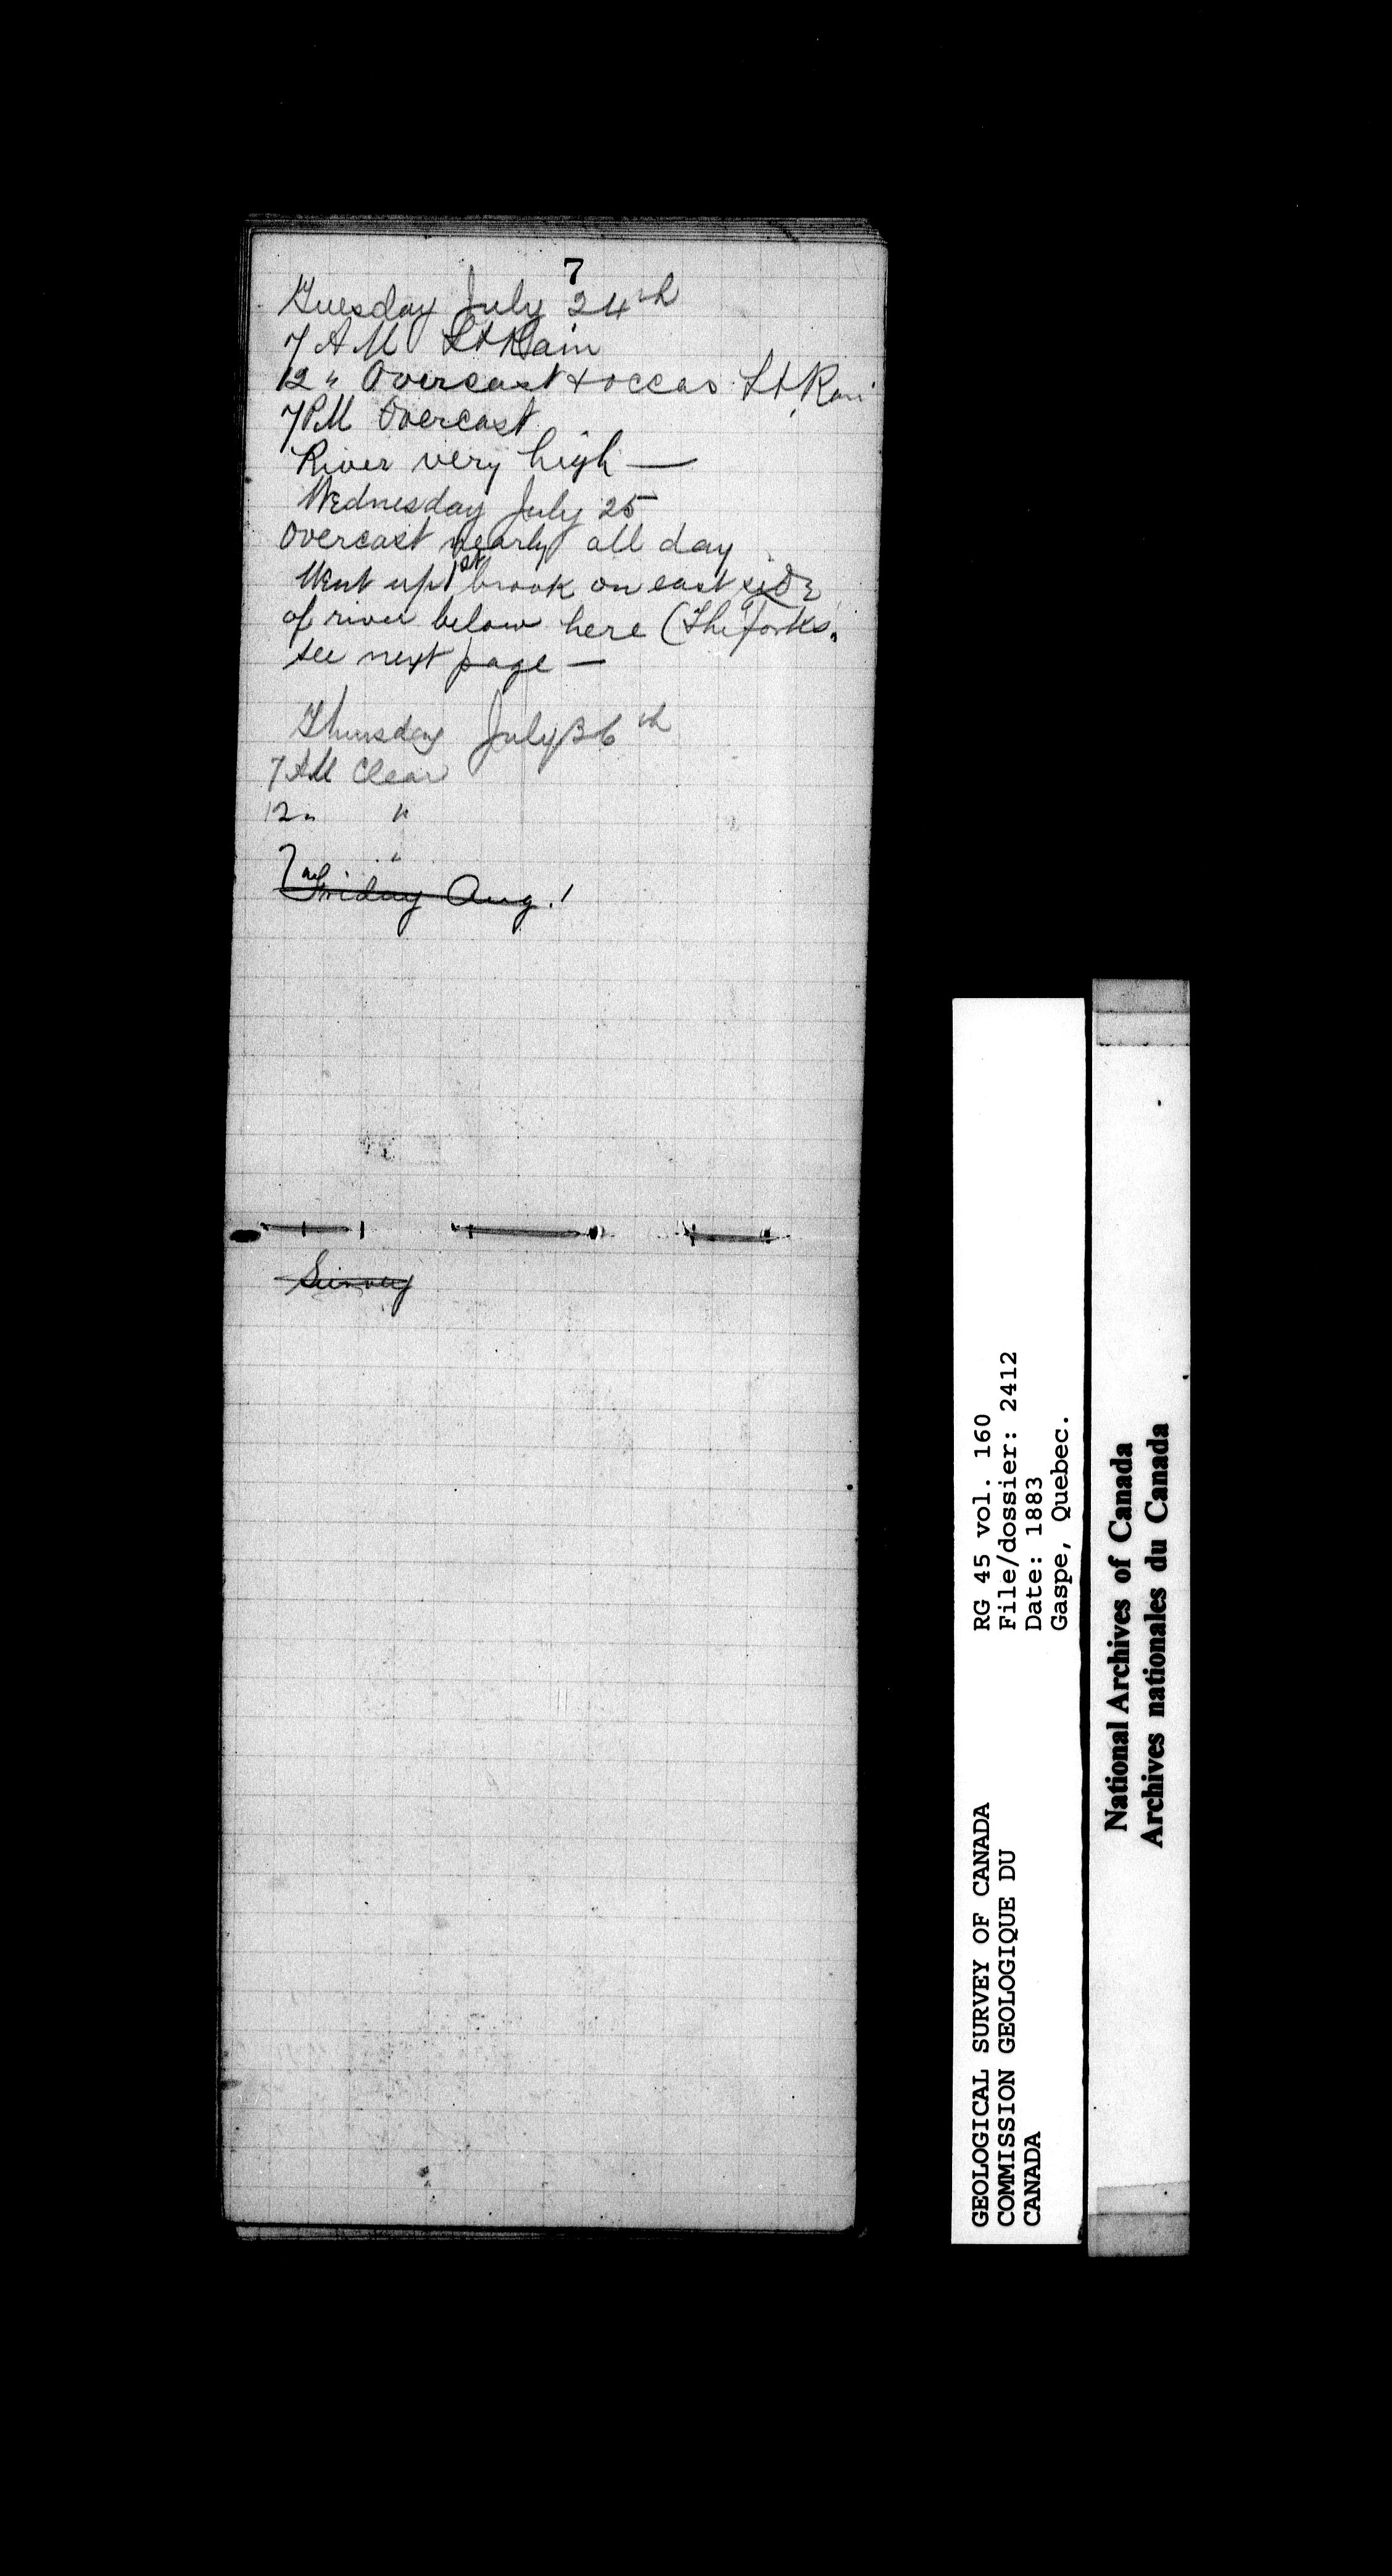 7
Tuesday July 24th
7 AM Lt Rain
12 " Overcast + occas. Lt Rain
7 PM Overcast
River very high —
Wednesday July 25
Overcast nearly all day
Went up 1st brook on east side
of river below here (The forks.
see next page —
Thursday July 26th
7 AM Clear
12 " "
7 "
Friday Aug. 1
Survey
RG 45 vol. 160
File/dossier: 2412
Date: 1883
Gaspe, Quebec.
GEOLOGICAL SURVEY OF CANADA
COMMISSION GEOLOGIQUE DU
CANADA
National Archives of Canada
Archives nationales du Canada